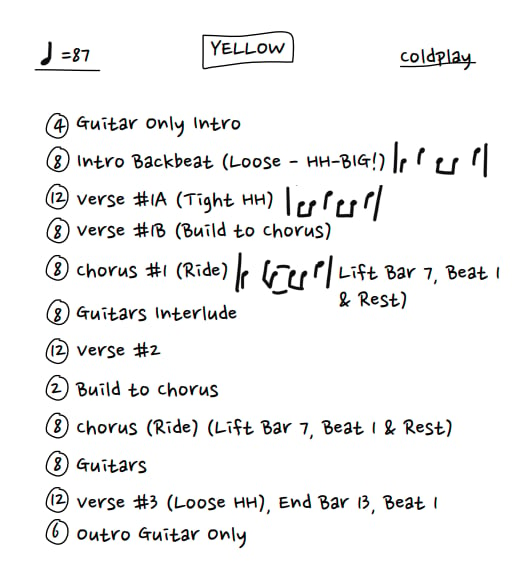 ♩=87 YELLOW coldplay
④ Guitar only Intro
⑧ Intro Backbeat (Loose - HH-BIG!)
⑫ verse #1A (Tight HH)
⑧ verse #1B (Build to chorus)
⑧ chorus #1 (Ride) Lift Bar 7, Beat 1
& Rest)
⑧ Guitars Interlude
⑫ verse #2
② Build to chorus
⑧ chorus (Ride) (Lift Bar 7, Beat 1 & Rest)
⑧ Guitars
⑫ verse #3 (Loose HH), End Bar 13, Beat 1
⑥ outro Guitar only